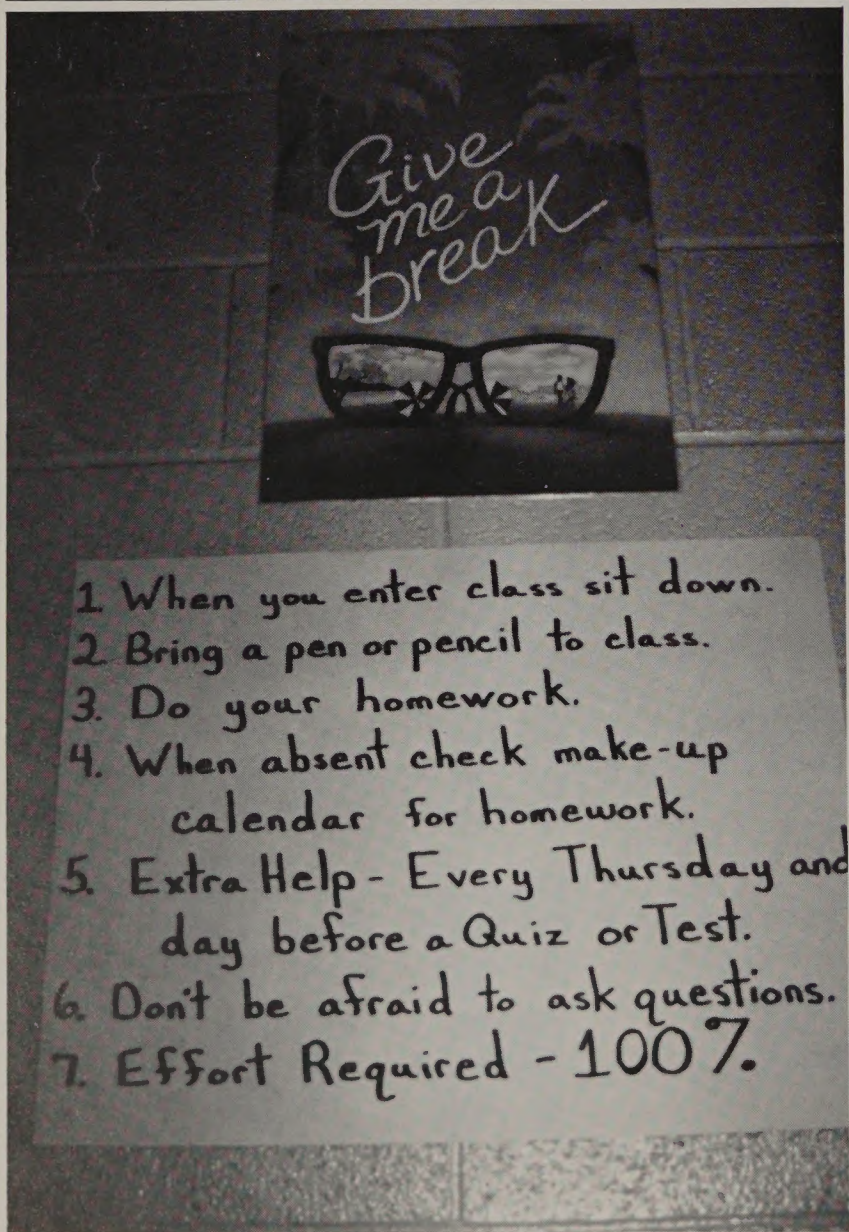 Give
me a
break
1. When you enter class sit down.
2. Bring a pen or pencil to class.
3. Do your homework.
4. When absent check make-up
calendar for homework.
5. Extra Help - Every Thursday and
day before a Quiz or Test.
6. Don't be afraid to ask questions.
7. Effort Required - 100%